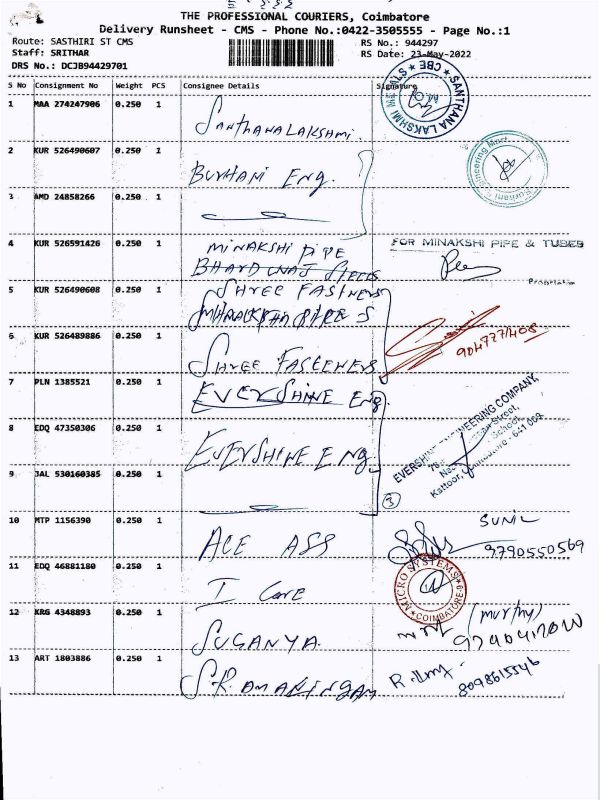 THE PROFESSIONAL COURIERS, Coimbatore
Delivery Runsheet - CMS - Phone No.:0422-3505555 - Page No.:1
Route: SASTHIRI ST CMS
RS No.: 944297
Staff: SRITHAR
RS Date: 23-May-2022
DRS No.: DCJB94429701
S No Consignment No Weight PCS Consignee Details Signature
1 MAA 274247906 0.250 1 SANTHANALAKSHMI
SANTHANA LAKSHMI METALS ★ CBE ★
2 KUR 526490607 0.250 1 BURHANI ENG.
Burhani Engineering Mart
3 AMD 24858266 0.250 1
4 KUR 526591426 0.250 1 MINAKSHI PIPE
FOR MINAKSHI PIPE & TUBES
BHARDWAJ STEELS
Proprietor
5 KUR 526490608 0.250 1 SHREE FASTNERS
6 KUR 526489886 0.250 1 SHREE FASTENERS
7 PLN 1385521 0.250 1 EVERSHINE ENG.
EVERSHINE ENGINEERING COMPANY,
Street,
School,
Kattoor, Coimbatore - 641 009
8 EDQ 47350306 0.250 1 EVERSHINE ENG.
9 JAL 530160385 0.250 1
3
10 MTP 1156390 0.250 1 ACE ASS
SUNIL
9790550569
11 EDQ 46881180 0.250 1 I Care
MICRO SYSTEMS ★ COIMBATORE ★
12 KRG 4348893 0.250 1 SUGANYA.
(murthy)
13 ART 1803886 0.250 1 S.RAMALINGAM
8098615546